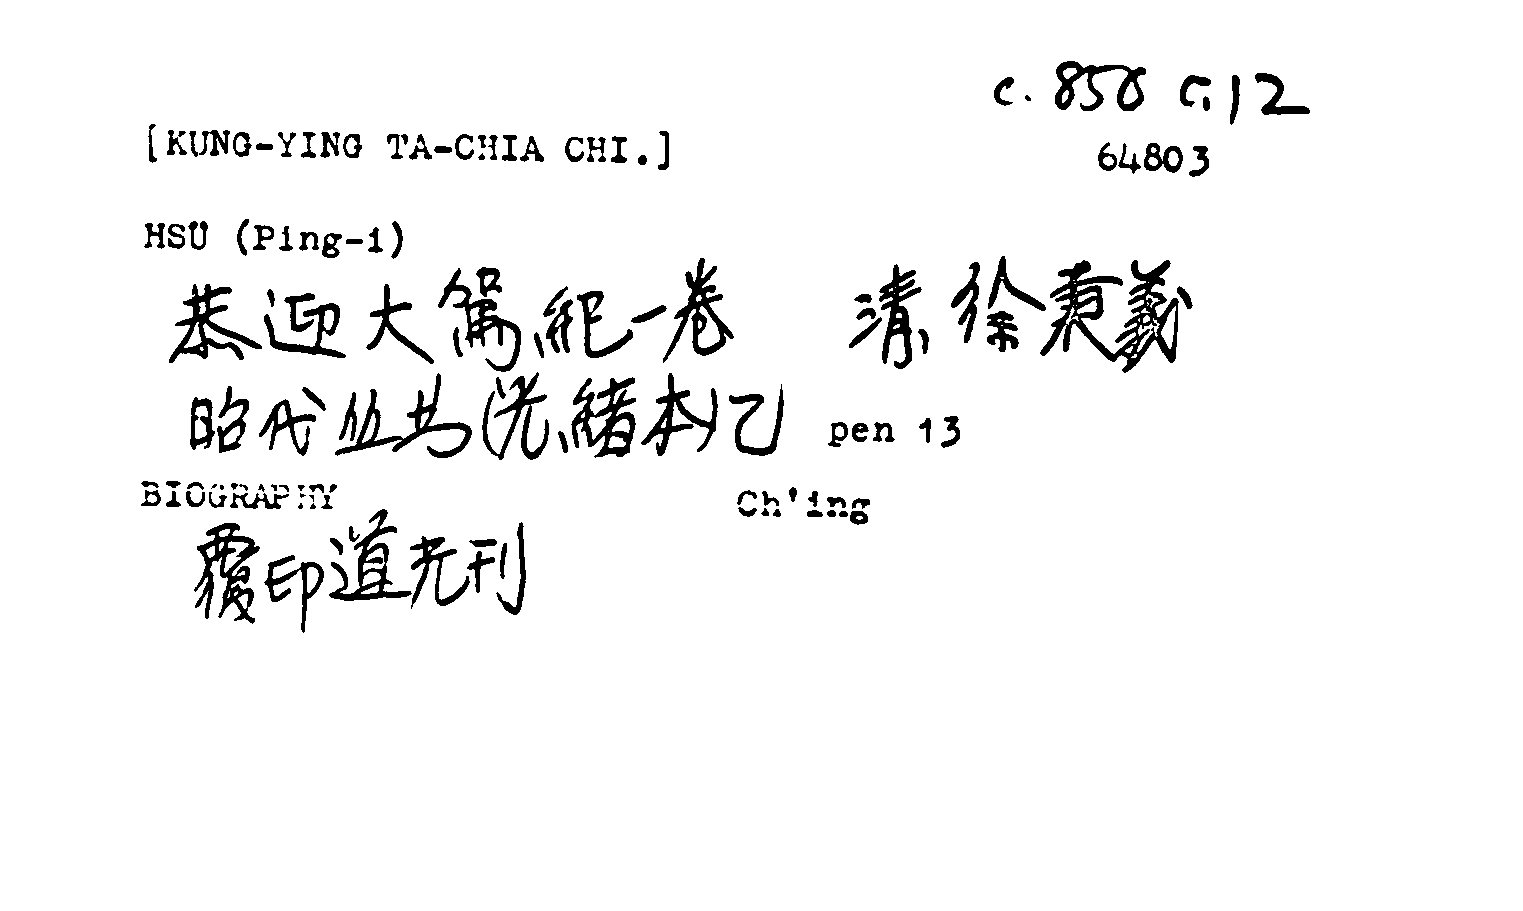 c. 850 c.12
[KUNG-YING TA-CHIA CHI.]
64803
HSÜ (Ping-i)
恭迎大駕紀一卷 清 徐秉義
昭代丛书(光緒本)乙 pen 13
BIOGRAPHY Ch'ing
覆印道光刊